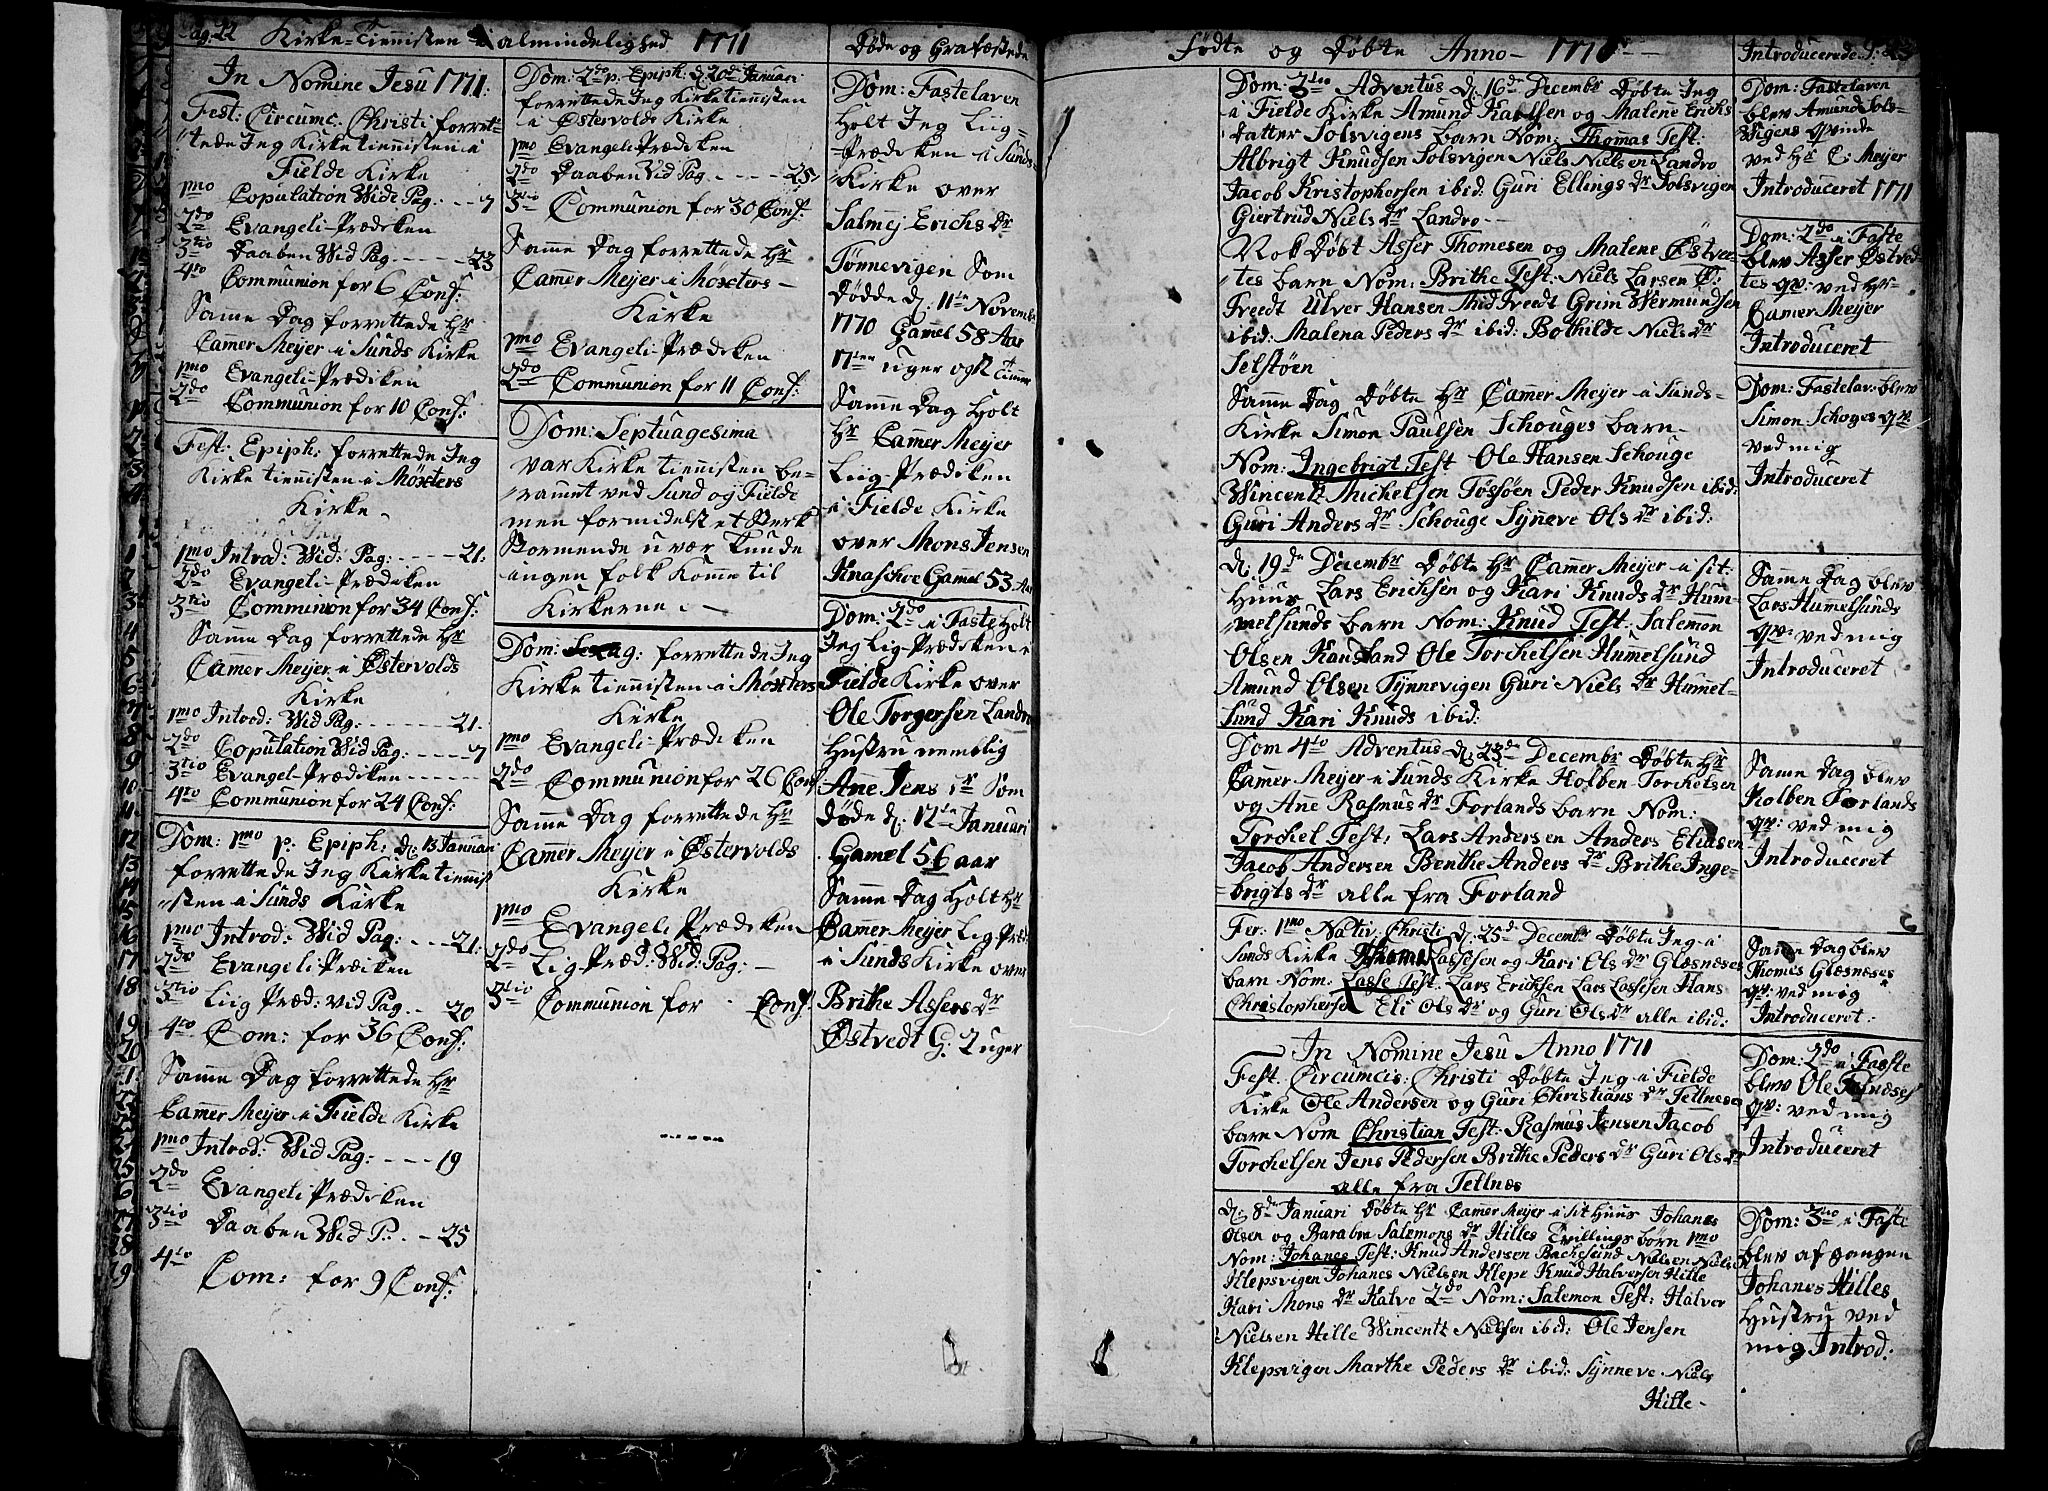 Pag: 22 Kirke-Tiennisten i almindelighed 1771
In Nomine Jesu 1771:
Fest: Circumc: Christi forret-
tede Jeg Kirketiennisten i
Fielde Kirke
1mo Copulation Wide Pag: - - 7
2do Evangeli-Prædiken
3tio Daaben Wid Pag - - - - - 23
4to Communion for 6 Conf:
Same Dag forrettede Hr
Camer Meyer i Sunds Kirke
1mo Evangeli-Prædiken
2do Communion for 10 Conf:
Fest: Epiph: forrettede Jeg
Kirke tiennisten i Møxters
Kirke -
1mo Introd: Wid: Pag: - - - - 21:
2do Evangeli-Prædeken
3tio Communion for 34 Conf:
Same Dag forrettede Hr
Camer Meyer i Østervolds
Kirke
1mo Introd: Wid Pag: - - - - - 21:
2do Copulation Wid Pag: - - - - 7
3tio Evangel-Prædiken - - - - -
4to Communion for 24 Conf:
Dom: 1mo p: Epiph: d: 13 Januari
forrettede Jeg Kirketiennist-
sten i Sunds Kirke
1mo Introd: Wid Pag: - - - 21:
2do Evangeli-Præciken
3tio Liig Præd: vid Pag. - 20
4to Com: for 36 Conf:
Same Dag forrettede Hr
Camer Meyer i Fielde Kirke
1mo Introd: Wid Pag: - - - 19
2do Evangeli Prædiken
3tio Daaben Wid P: - - 25
4to Com: for 9 Conf:
Dom: 2do p: Epiph: d: 20de Januari
forrettede Jeg Kirketiennisten
i Østervolds Kirke
1mo Evangeli Prædiken
2do Daaben Vid Pag - - - - - 25
3tio Communion for 30 Conf:
Same Dag forrettede Hr
Camer Meyer i Møxters -
Kirke
1mo Evangeli-Prædeken
2do Communion for 11 Conf:
Dom: Septuagesima
var Kirke tiennisten be-
ramet ved Sund og Fielde
men formidelst et Sterk
Stormende uvær kunde
ingen folk komme til
Kirkerne : -
Dom: Sexag: forrettede Jeg
Kirke tiennisten i Møxters
Kirke
1mo Evangeli-Prædeken
2do Communion for 26 Conf
Same Dag forrettede Hr
Camer Meyer i Østervolds
Kirke
1mo Evangeli Prædeken
2do Lig-Præd: Wid: Pag: -
3tio Communion for - Conf:
Døde og Grafæstede
Dom: Fastelaven
Holt Jeg Liig-
Prædeken i Sunds
Kirke over
Salmej Erichs dr
Tønnevigen Som
Dødde d: 11te Novemb:
1770 Gamel 58 Aar
17ten uger og 2 timer
Same Dag Holt
Hr Camer Meyer
Liig-Prædeken
i Fielde Kirke
over Mons Jensen
Gamel 53 Aar
Dom: 2do i Faste Holt
Jeg Lig-Prædeken i
Fielde Kirke over
Ole Torgersen Landro
Hustru nemelig
Anne Jens dr Som
døde d: 12te Januari
Gamel 56 aar
Same Dag Holt Hr
Camer Meyer Lig-Præd:
i Sunds Kirke over
Brithe Assers dr
Østvedt G: 2 uger
Fødte og Døbte Anno - 1770
Dom: 3tio Adventus d: 16de Decembr Døbte Jeg
i Fielde Kirke Amund Karlsen og Malene Erichs
datter Solsvigens barn Nom: Thomas Test:
Albrigt Knudsen Solsvigen Niels Nielsen Landro
Jacob Kristophersen ibid: Guri Ellings dr Solsvigen
Giertrud Niels dr Landro - -
Nok Døbt Asser Thomesen og Malene Østve-
tes barn Nom: Brithe Test: Niels Larsen Ø:
Tvedt Ulver Hansen Midtvedt Grim Wermundsen
ibid: Malena Peders dr ibid: Bothilde Niels dr
Selstøen
Same Dag Døbte Hr Camer Meyer i Sunds-
Kirke Simon Paulsen Schouges barn -
Nom: Ingebrigt Test Ole Hansen Schouge
Wincentz Michelsen Tøssøen Peder Knudsen ibid:
Guri Anders dr Schouge Synneve Ols dr ibid:
d: 19de Decembr Døbte Hr Camer Meyer i sit
Huus Lars Erichsen og Kari Knuds dr Hum-
melsunds barn Nom: Knud Test: Salemon
Olsen Kausland Ole Torchelsen Hummelsund
Amund Olsen Tynnevigen Guri Niels dr Hummel-
sund Kari Knuds ibid:
Dom 4to Adventus d: 23de Decembr Døbte Hr
Camer Meyer i Sunds Kirke Kolben Torchelsen
og Ane Rasmus dr Forlands barn Nom:
Torchel Test: Lars Andersen Anders Eliasen
Jacob Andersen Benthe Anders dr Brithe Inge-
brigts dr alle fra Forland
Fer: 1mo Nativ: Christi d: 25de Decembr Døbte Jeg i
Sunds Kirke Thomas Lassesen og Kari Ols dr Glæsneses
barn Nom: Lasse Test: Lars Ericksen Lars Lassesen Hans
Christophersen Eli Ols dr og Guri Ols dr alle ibid:
In Nomine Jesu Anno 1771
Fest. Circumcis: Christi Døbte Jeg i Fielde
Kirke Ole Andersen og Guri Christians dr Tellneses
barn Nom Christian Test: Rasmus Jensen Jacob
Torchelsen Jens Pedersen Brithe Peders dr Guri Ols dr
alle fra Tellnes
d: 8de Januari Døbte Hr Camer Meyer i sit Huus Johanes
Olsen og Barabra Salemons dr Hilles Tvillings børn 1mo
Nom: Johanes Test: Knud Andersen Backesund Nielsen Niels
Klepsvigen Johanes Nielsen Klepe Knud Halversen Hille
Kari Mons dr Kalve 2do Nom: Salemon Test: Halver
Nielsen Hille Wincentz Nielsen ibid: Ole Jensen
Klepsvigen Marthe Peders dr ibid: Synneve Niels
Hille -
Introducerede P: 23
Dom: Fastelaven
blev Amund Sols-
Wigens qvinde
ved Hr C: Meyer
Introduceret 1771
Dom: 2do i Faste
blev Asser Østved-
tes qv: ved Hr-
Camer Meyer
Introduceret
Dom: Fastelav: blev
Simon Schoges qv:
ved mig
Introduceret
Same Dag blev
Lars Humelsunds
qv: ved mig
Introduceret
Same Dag blev
Kolben Forlands
qv: ved mig
Introduceret
Same Dag blev
Thomes Glæsneses
qv: ved mig
Introduceret:
Dom: 2do i Faste
blev Ole Telneses
qv: ved mig
Introduceret
Dom: 3tio i Faste
blev af gangen
Johanes Hilles
Hustru ved
mig Introd: